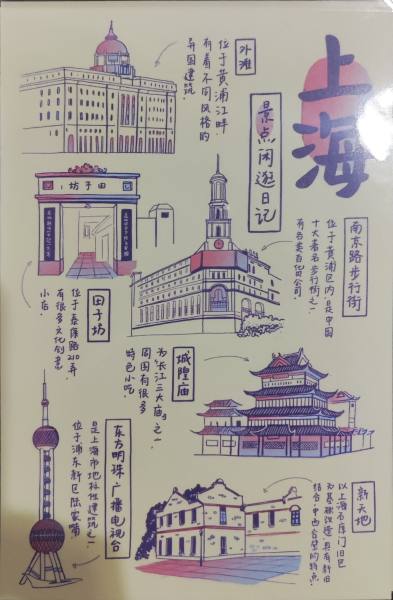 上海
景点闲逛日记
外滩
位于黄浦江畔
有着不同风格的
异国建筑.
南京路步行街
位于黄浦区内,是中国
十大著名步行街之一
有各类百货公司.
田子坊
田子坊
位于泰康路210弄
有很多文化创意
小店.
城隍庙
为长江三大庙之一
周围有很多
特色小吃.
东方明珠广播电视台
是上海市地标性建筑之一
位于浦东新区陆家嘴
新天地
以上海石库门旧区
为基础改造,具有新旧
结合,中西合璧的特点.